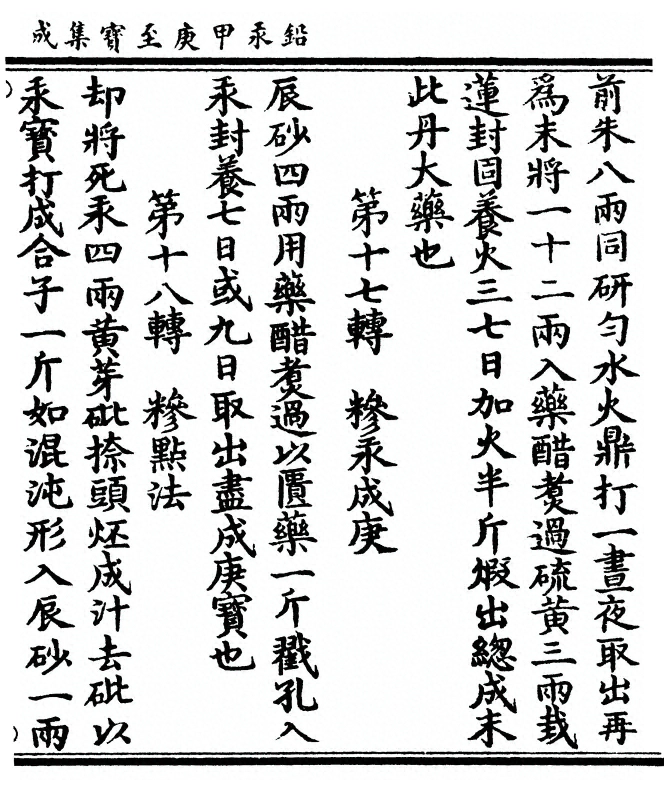 鉛汞甲庚至寶集成
前朱八兩同研勻水火鼎打一晝夜取出再
爲末將一十二兩入藥醋煑過硫黄三兩栽
蓮封固養火三七日加火半斤煆出總成末
此丹大藥也
第十七轉 糝汞成庚
辰砂四兩用藥醋煑過以匱藥一斤戳孔入
汞封養七日或九日取出盡成庚寶也
第十八轉 糝點法
却將死汞四兩黄芽砒捺頭炵成汁去砒以
汞寶打成合子一斤如混沌形入辰砂一兩